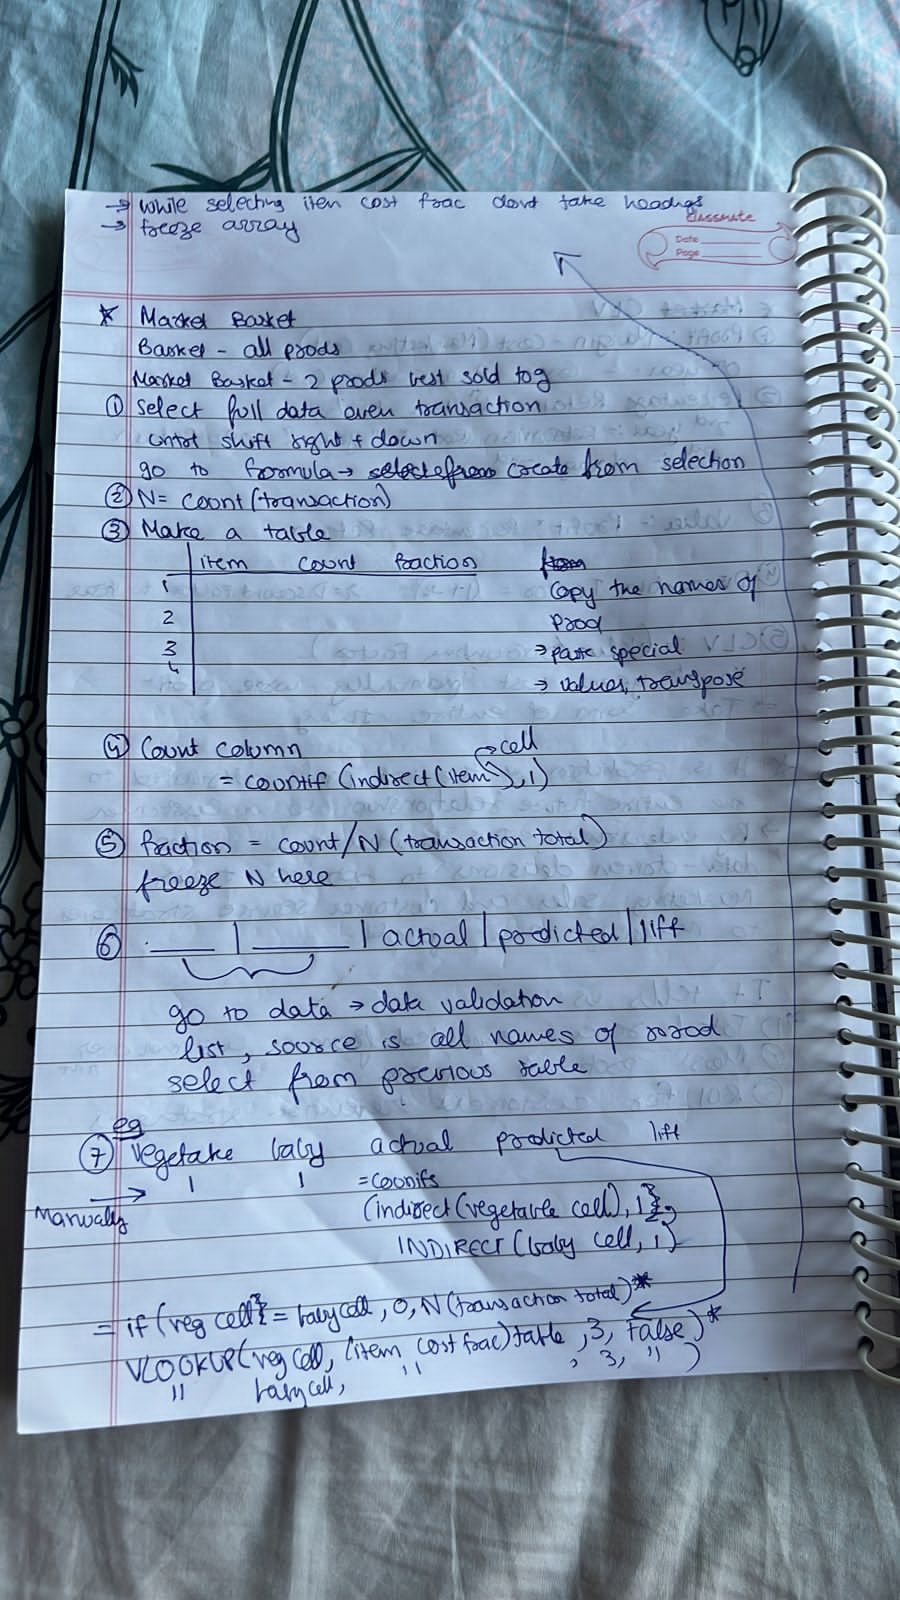 → while selecting item cost frac dont take headings
→ freeze array
classmate
Date
Page
* Market Basket
Basket - all prods
Market Basket - 2 prods best sold tog
① Select full data even transaction
cntrl shift right + down
go to formula → create from selection
② N= count (transaction)
③ Make a table
item count fraction
1 Copy the names of
2 prod
3 → paste special
4 → values, transpose
④ Count column → cell
= countif (indirect (item), 1)
⑤ fraction = count/N (transaction total)
freeze N here
⑥ ____ | ____ | actual | predicted | lift
go to data → data validation
list, source is all names of prod
select from previous table
eg
⑦ vegetable baby actual predicted lift
1 1 = countifs
Manually → (indirect (vegetable cell), 1,
INDIRECT (baby cell, 1)
= if (veg cell = baby cell, 0, N (transaction total) *
VLOOKUP (veg cell, (item cost frac) table, 3, false) *
" baby cell, " , 3, " )